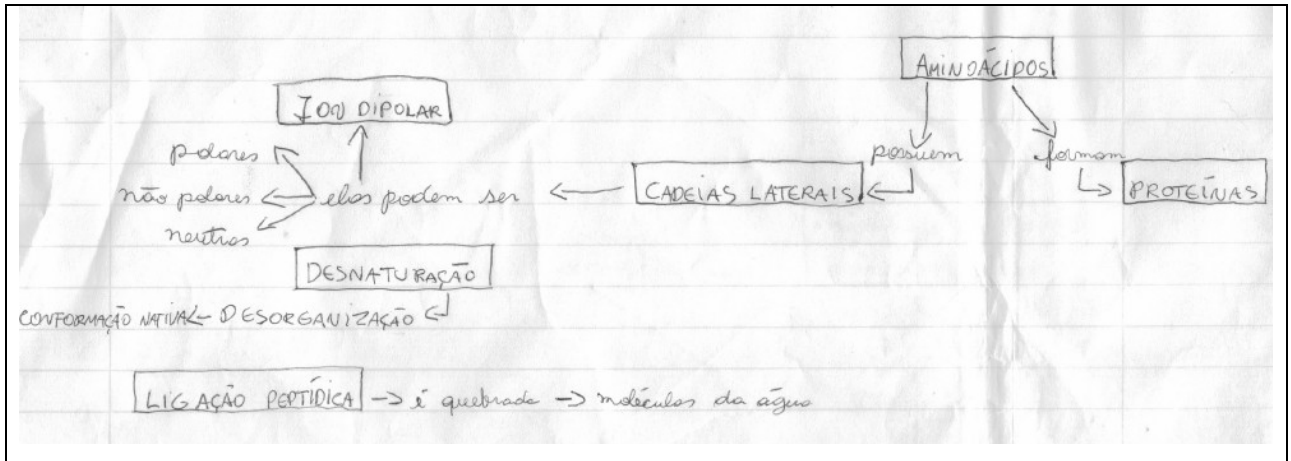 AMINOÁCIDOS
ION DIPOLAR
polares
possuem
formam
não polares
elas podem ser
CADEIAS LATERAIS
PROTEÍNAS
neutras
DESNATURAÇÃO
CONFORMAÇÃO NATIVA
DESORGANIZAÇÃO
LIGAÇÃO PEPTÍDICA → é quebrada → moléculas da água